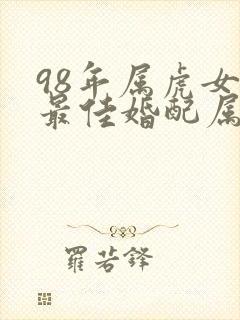 98年属虎女
最佳婚配属
羅若鋒